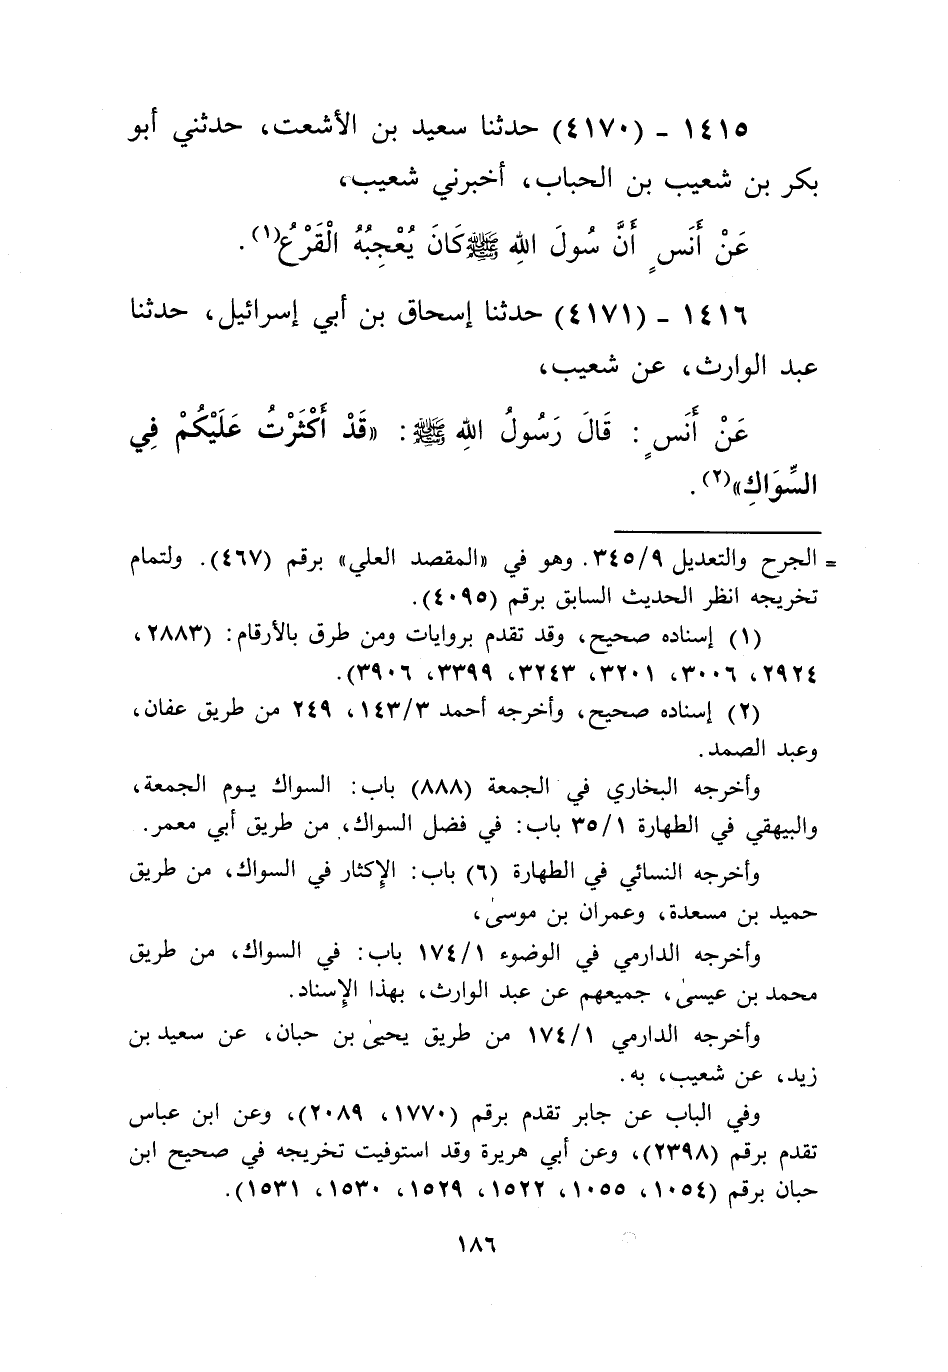 ١٤١٥ - (٤١٧٠) حدثنا سعيد بن الأشعت، حدثني أبو
بكر بن شعيب بن الحباب، أخبرني شعيب،
عَنْ أَنَسٍ أَنَّ سُولَ اللهِ ﷺ كَانَ يُعْجِبُهُ الْقَرْعُ(١).
١٤١٦ - (٤١٧١) حدثنا إسحاق بن أبي إسرائيل، حدثنا
عبد الوارث، عن شعيب،
عَنْ أَنَسٍ: قَالَ رَسُولُ اللهِ ﷺ: «قَدْ أَكْثَرْتُ عَلَيْكُمْ فِي
السِّوَاكِ»(٢).
= الجرح والتعديل ٣٤٥/٩. وهو في «المقصد العلي» برقم (٤٦٧). ولتمام
تخريجه انظر الحديث السابق برقم (٤٠٩٥).
(١) إسناده صحيح، وقد تقدم بروايات ومن طرق بالأرقام: (٢٨٨٣،
٢٩٢٤، ٣٠٠٦، ٣٢٠١، ٣٢٤٣، ٣٣٩٩، ٣٩٠٦).
(٢) إسناده صحيح، وأخرجه أحمد ١٤٣/٣، ٢٤٩ من طريق عفان،
وعبد الصمد.
وأخرجه البخاري في الجمعة (٨٨٨) باب: السواك يوم الجمعة،
والبيهقي في الطهارة ٣٥/١ باب: في فضل السواك، من طريق أبي معمر.
وأخرجه النسائي في الطهارة (٦) باب: الإكثار في السواك، من طريق
حميد بن مسعدة، وعمران بن موسىٰ،
وأخرجه الدارمي في الوضوء ١٧٤/١ باب: في السواك، من طريق
محمد بن عيسىٰ، جميعهم عن عبد الوارث، بهذا الإسناد.
وأخرجه الدارمي ١٧٤/١ من طريق يحيىٰ بن حبان، عن سعيد بن
زيد، عن شعيب، به.
وفي الباب عن جابر تقدم برقم (١٧٧٠، ٢٠٨٩)، وعن ابن عباس
تقدم برقم (٢٣٩٨)، وعن أبي هريرة وقد استوفيت تخريجه في صحيح ابن
حبان برقم (١٠٥٤، ١٠٥٥، ١٥٢٢، ١٥٢٩، ١٥٣٠، ١٥٣١).
١٨٦